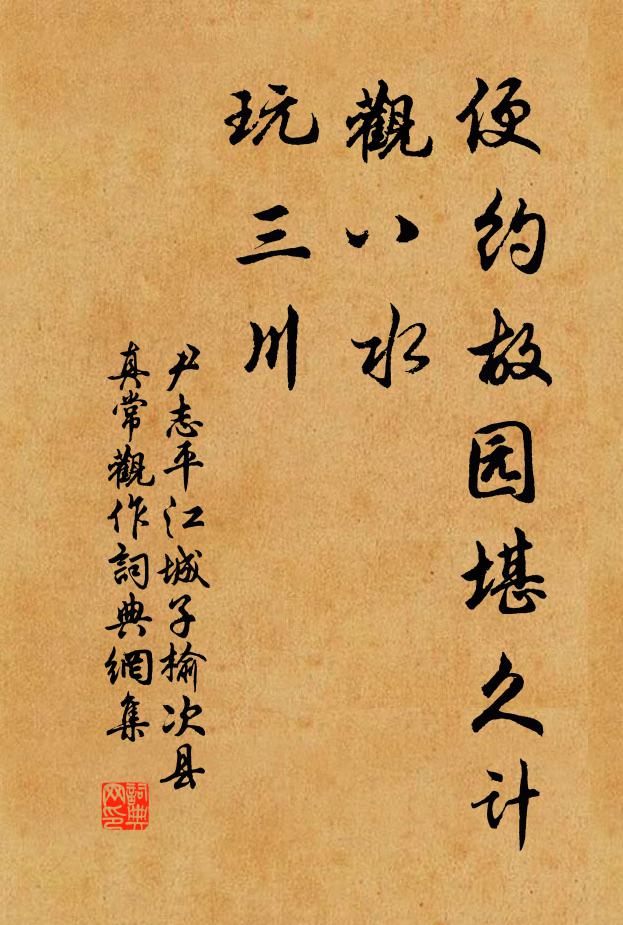 便约故园堪久计
觀八水
玩三川
尹志平江城子榆次县
真常觀作詞典網集
詞典
网印